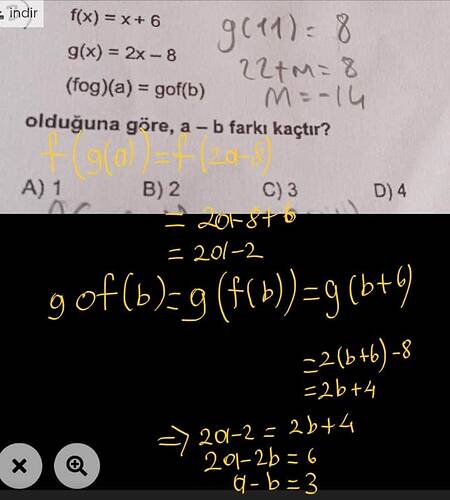 indir
f(x) = x + 6
g(x) = 2x – 8
(fog)(a) = gof(b)
g(11) = 8
22+m = 8
m = -14
olduğuna göre, a – b farkı kaçtır?
f(g(a)) = f(2a-8)
A) 1 B) 2 C) 3 D) 4
= 2a-8+6
= 2a-2
gof(b) = g(f(b)) = g(b+6)
= 2(b+6)-8
= 2b+4
=> 2a-2 = 2b+4
2a-2b = 6
a-b = 3